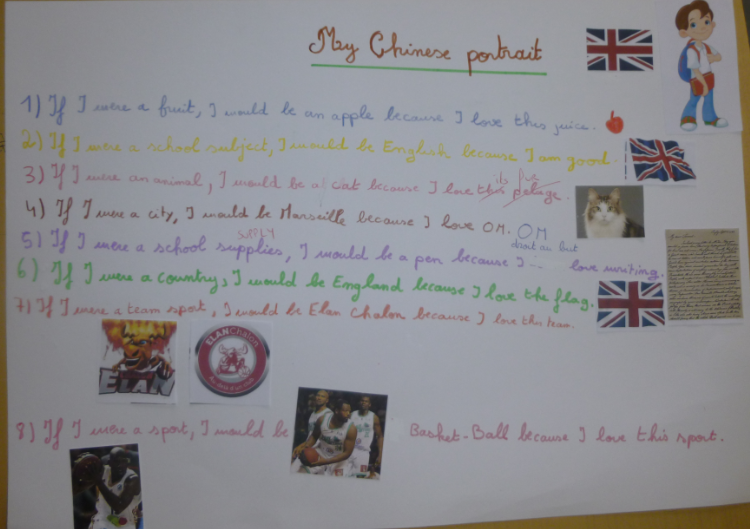 My Chinese portrait
1) If I were a fruit, I would be an apple because I love this juice.
2) If I were a school subject, I would be English because I am good.
its fur
3) If I were an animal, I would be a cat because I love this pelage.
4) If I were a city, I would be Marseille because I love OM. OM
supply
5) If I were a school supplies, I would be a pen because I ... love writing.
6) If I were a country, I would be England because I love the flag.
7) If I were a team sport, I would be Elan Chalon because I love this team.
ELAN
ELANChalon
8) If I were a sport, I would be Basket-Ball because I love this sport.